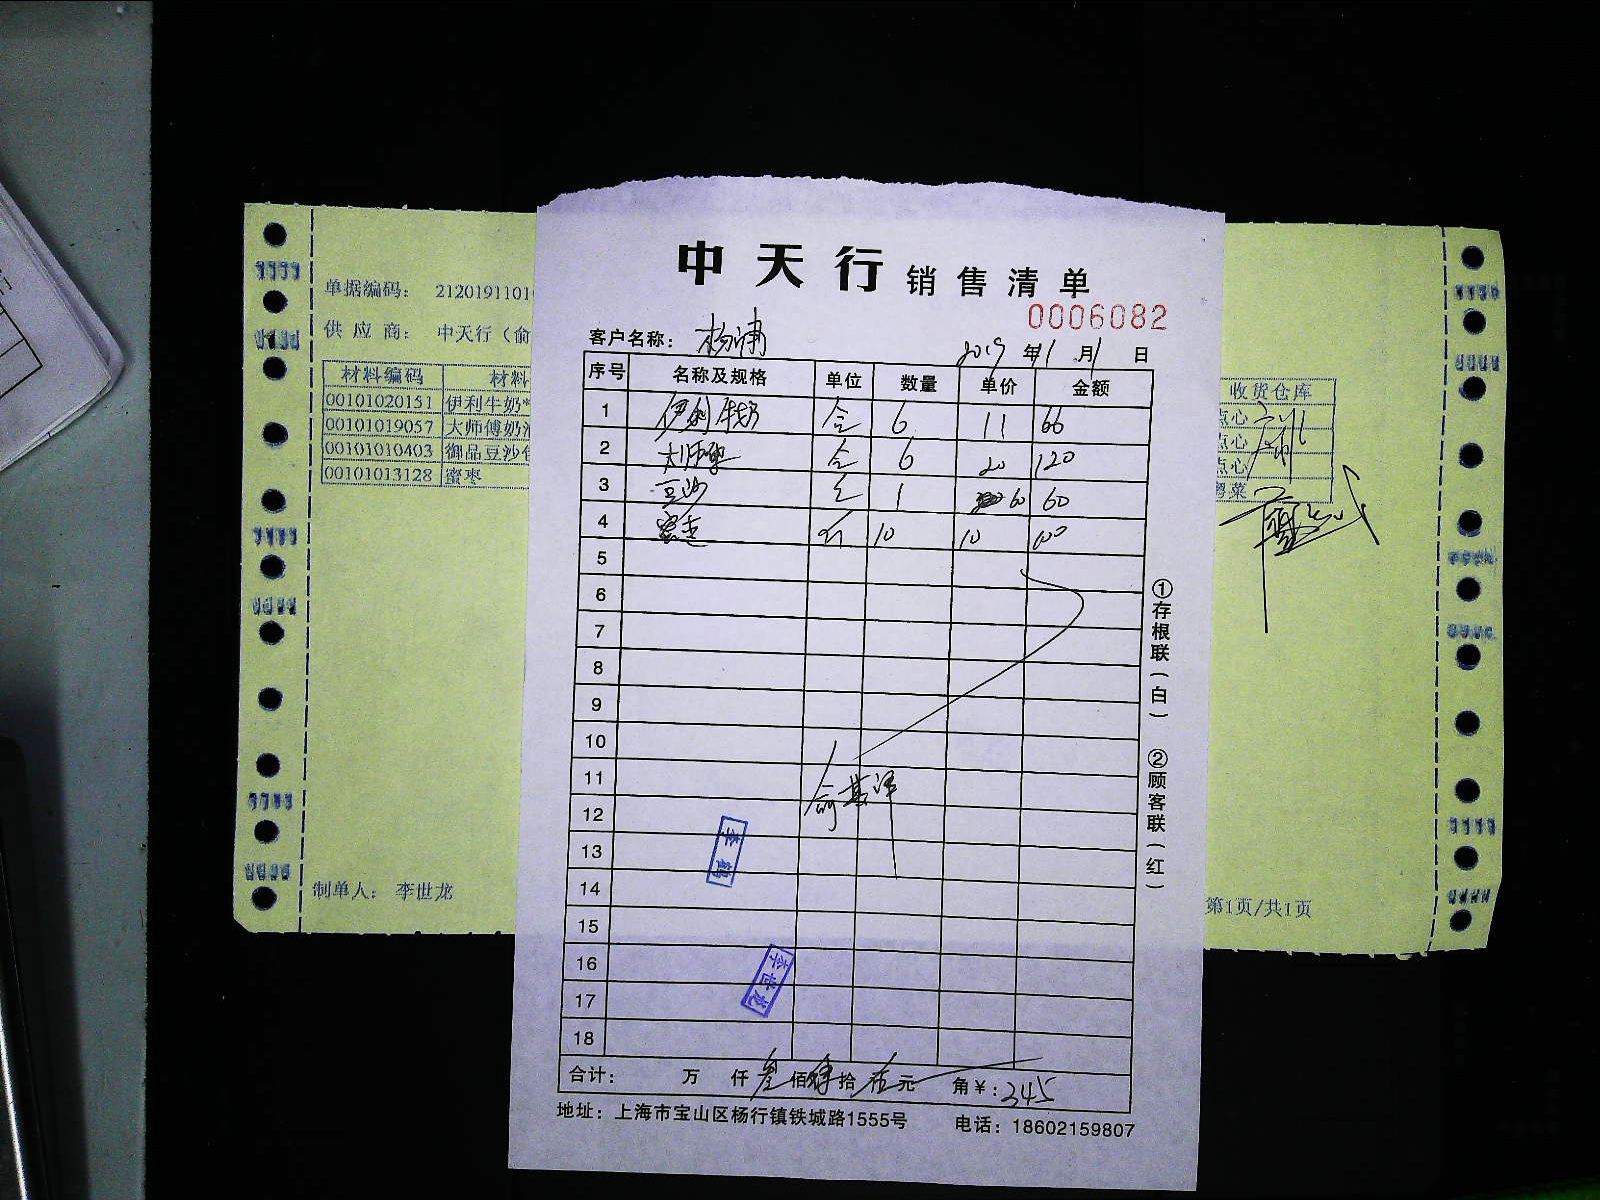 中天行 销售清单
0006082
客户名称： 杨浦 2019 年 1 月 1 日
序号 名称及规格 单位 数量 单价 金额
1 伊利牛奶 6 11 66
2 6 20 120
3 豆沙 1 60 60
4 10 10 100
5
6
7
8
9
10
11
12
13
14
15
16
17
18
合计： 万 仟 叁 佰 肆 拾 伍 元 角 ¥: 345
地址：上海市宝山区杨行镇铁城路1555号 电话：18602159807
①存根联（白） ②顾客联（红）
李鹤
李世龙
单据编码： 2120191101
供 应 商： 中天行（俞
材料编码 材料
00101020151 伊利牛奶*
00101019057 大师傅奶油
00101010403 御品豆沙包
00101013128 蜜枣
制单人： 李世龙
收货仓库
点心
点心
点心
粤菜
第1页/共1页